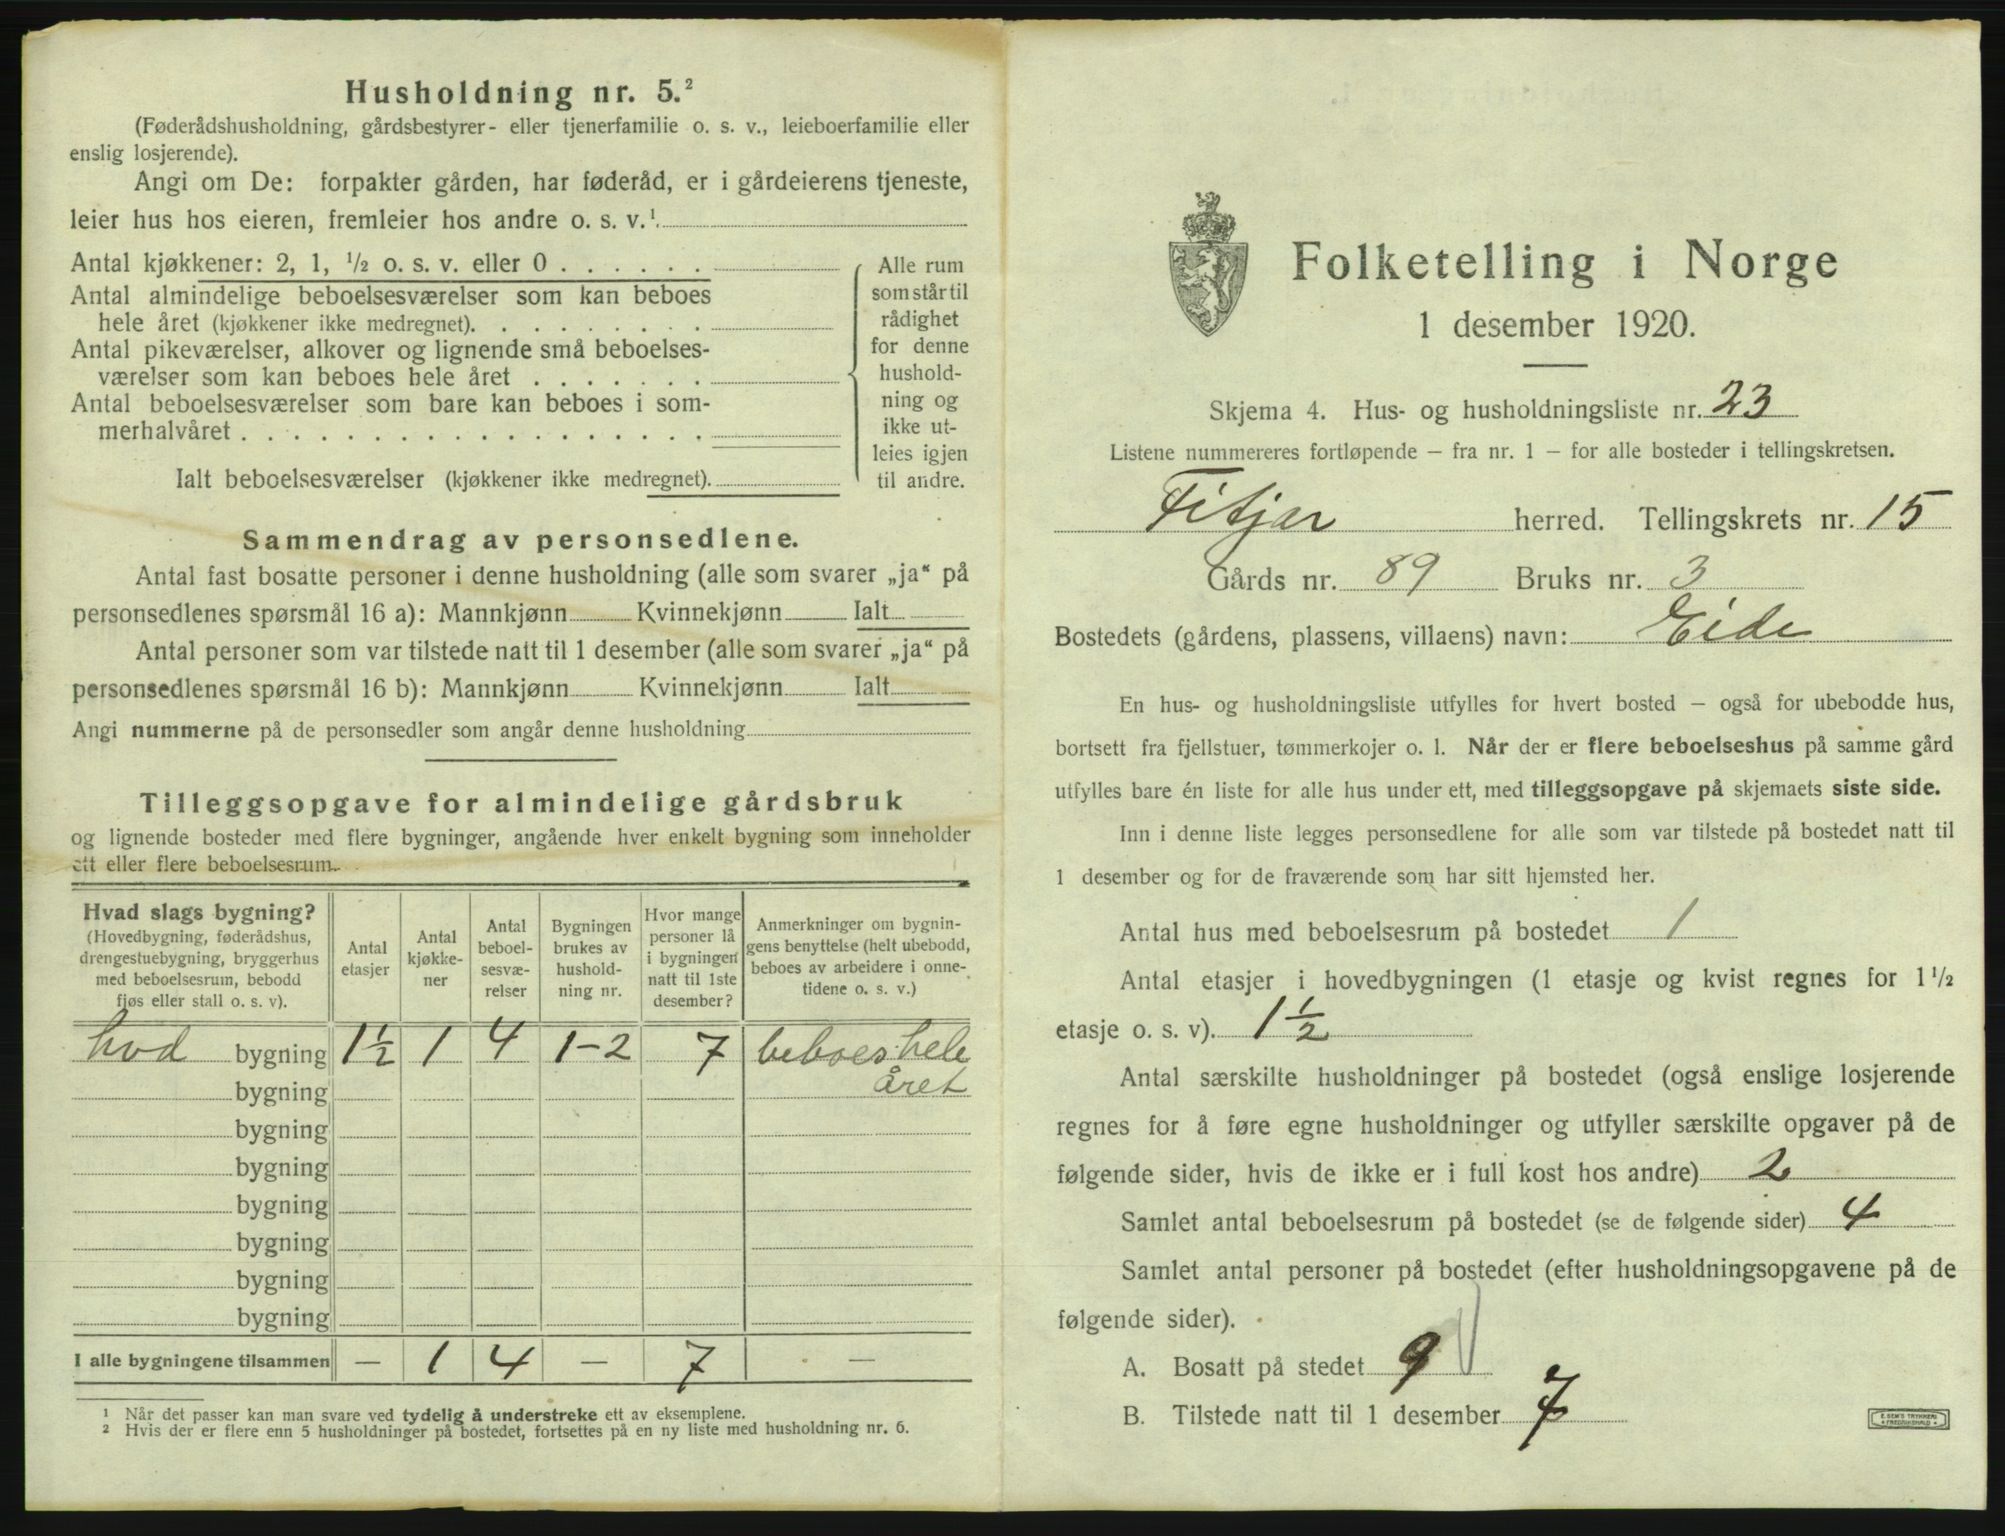 Husholdning nr. 5.²
(Føderådshusholdning, gårdsbestyrer- eller tjenerfamilie o. s. v., leieboerfamilie eller
enslig losjerende).
Angi om De: forpakter gården, har føderåd, er i gårdeierens tjeneste,
leier hus hos eieren, fremleier hos andre o. s. v.¹
Antal kjøkkener: 2, 1, ½ o. s. v. eller 0 . . . . . .
Antal almindelige beboelsesværelser som kan beboes
hele året (kjøkkener ikke medregnet). . . . . . . . .
Antal pikeværelser, alkover og lignende små beboelses-
værelser som kan beboes hele året . . . . . . .
Antal beboelsesværelser som bare kan beboes i som-
merhalvåret . . . . . . . . . . . . . . . . . .
Ialt beboelsesværelser (kjøkkener ikke medregnet).
Alle rum
som står til
rådighet
for denne
hushold-
ning og
ikke ut-
leies igjen
til andre.
Sammendrag av personsedlene.
Antal fast bosatte personer i denne husholdning (alle som svarer „ja“ på
personsedlenes spørsmål 16 a): Mannkjønn Kvinnekjønn Ialt
Antal personer som var tilstede natt til 1 desember (alle som svarer „ja“ på
personsedlenes spørsmål 16 b): Mannkjønn Kvinnekjønn Ialt
Angi nummerne på de personsedler som angår denne husholdning
Tilleggsopgave for almindelige gårdsbruk
og lignende bosteder med flere bygninger, angående hver enkelt bygning som inneholder
ett eller flere beboelsesrum.
Hvad slags bygning?
(Hovedbygning, føderådshus,
drengestuebygning, bryggerhus
med beboelsesrum, bebodd
fjøs eller stall o. s. v).
Antal
etasjer
Antal
kjøkke-
ner
Antal
beboel-
sesvæ-
relser
Bygningen
brukes av
hushold-
ning nr.
Hvor mange
personer lå
i bygningen
natt til 1ste
desember?
Anmerkninger om bygnin-
gens benyttelse (helt ubebodd,
beboes av arbeidere i onne-
tidene o. s. v.)
hvd bygning 1½ 1 4 1-2 7 beboes hele
bygning året
bygning
bygning
bygning
bygning
bygning
bygning
I alle bygningene tilsammen — 1 4 — 7 —
¹ Når det passer kan man svare ved tydelig å understreke ett av eksemplene.
² Hvis der er flere enn 5 husholdninger på bostedet, fortsettes på en ny liste med husholdning nr. 6.
Folketelling i Norge
1 desember 1920.
Skjema 4. Hus- og husholdningsliste nr. 23
Listene nummereres fortløpende — fra nr. 1 — for alle bosteder i tellingskretsen.
Fitjar herred. Tellingskrets nr. 15
Gårds nr. 89 Bruks nr. 3
Bostedets (gårdens, plassens, villaens) navn: Eide
En hus- og husholdningsliste utfylles for hvert bosted — også for ubebodde hus,
bortsett fra fjellstuer, tømmerkojer o. l. Når der er flere beboelseshus på samme gård
utfylles bare én liste for alle hus under ett, med tilleggsopgave på skjemaets siste side.
Inn i denne liste legges personsedlene for alle som var tilstede på bostedet natt til
1 desember og for de fraværende som har sitt hjemsted her.
Antal hus med beboelsesrum på bostedet 1
Antal etasjer i hovedbygningen (1 etasje og kvist regnes for 1½
etasje o. s. v). 1½
Antal særskilte husholdninger på bostedet (også enslige losjerende
regnes for å føre egne husholdninger og utfyller særskilte opgaver på de
følgende sider, hvis de ikke er i full kost hos andre) 2
Samlet antal beboelsesrum på bostedet (se de følgende sider) 4
Samlet antal personer på bostedet (efter husholdningsopgavene på de
følgende sider).
A. Bosatt på stedet 9
B. Tilstede natt til 1 desember 7
E. SEM'S TRYKKERI
FREDRIKSHALD